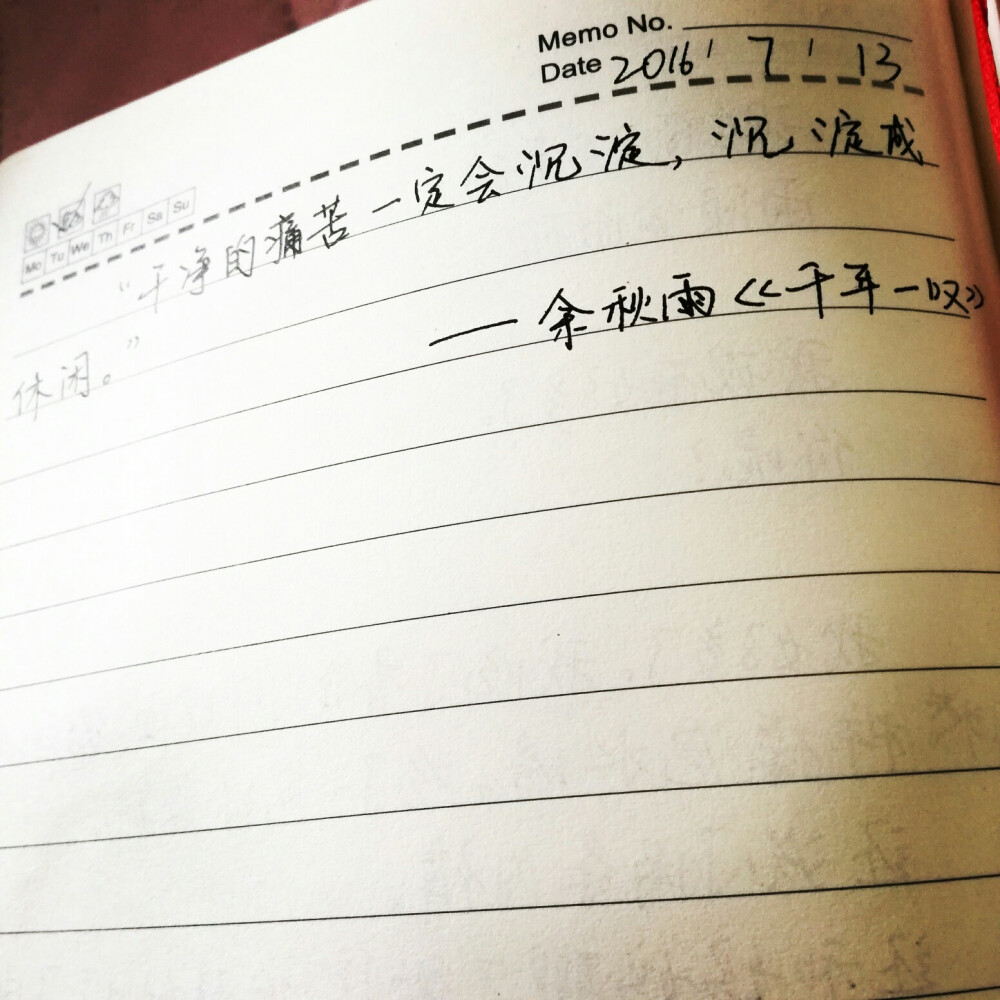 Memo No.
Date 2016' 7' 13
Mo Tu We Th Fr Sa Su
“干净的痛苦一定会沉淀，沉淀成
休闲。”
—余秋雨《千年一叹》